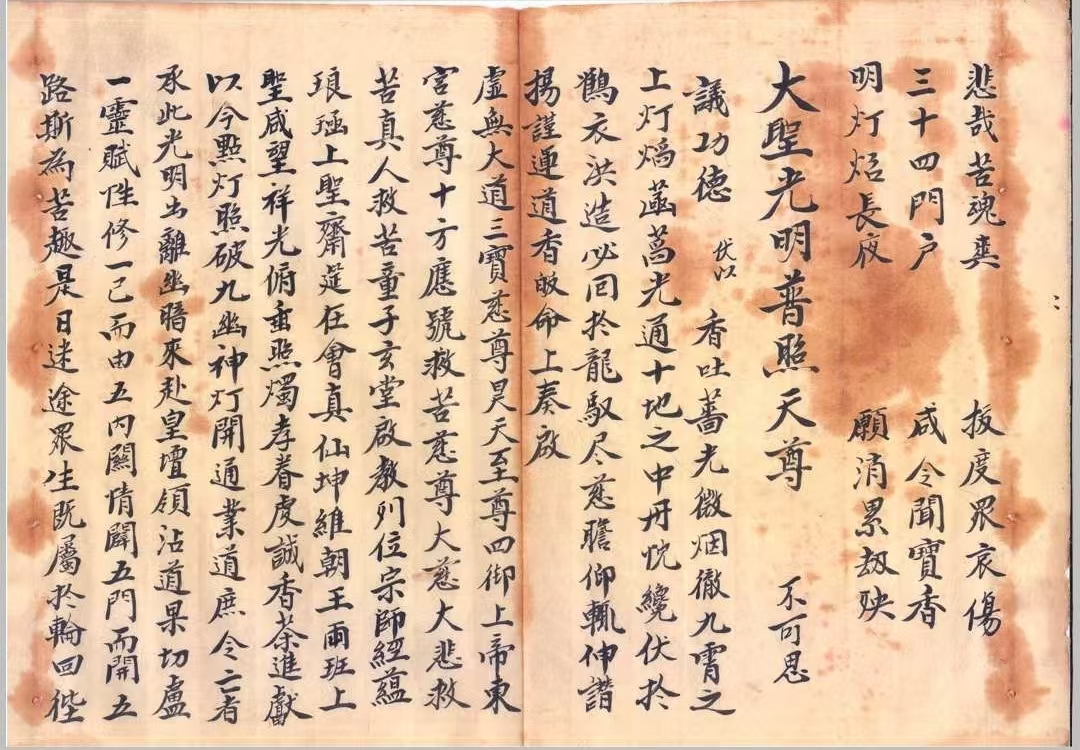 悲哉苦魂 㪚度眾哀傷
三十四門户 咸令聞寶香
明灯炤長夜 願消累劫殃
大聖光明普照天尊 不可思
議功德 伏以 香吐薔光微烟徹九霄之
上灯焰菡萏光通十地之中丹悃纔伏扵
鶴衣洪造必回扵龍馭尽慈瞻仰輙伸讃
揚謹運道香皈命上奏啟
虛無大道三寶慈尊昊天至尊四御上帝東
宮慈尊十方應號救苦慈尊大慈大悲救
苦真人救苦童子玄堂啟教列位宗師經蘊
琅函上聖齋筵在會真仙坤維朝王兩班上
聖咸望祥光俯垂照燭孝眷虔誠香茶進獻
以今㸃灯照破九幽神灯開通業道庶令亡者
承此光明出離幽暗來赴皇壇領沾道果切盧
一靈賦性修一己而由五內闕情闢五門而開五
路斯為苦趣是日迷途眾生既屬扵輪回徃